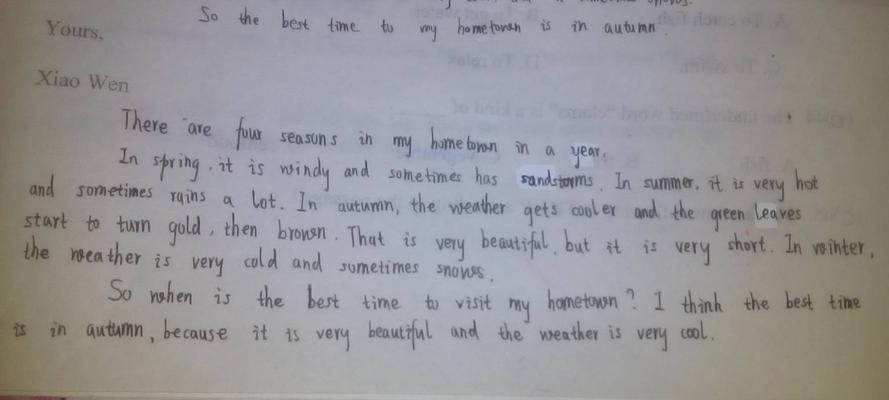 So the best time to my hometown is in autumn
Yours,
Xiao Wen
There are four seasons in my hometown in a year.
In spring, it is windy and sometimes has sandstorms. In summer, it is very hot
and sometimes rains a lot. In autumn, the weather gets cooler and the green leaves
start to turn gold, then brown. That is very beautiful, but it is very short. In winter,
the weather is very cold and sometimes snows.
So when is the best time to visit my hometown? I think the best time
is in autumn, because it is very beautiful and the weather is very cool.